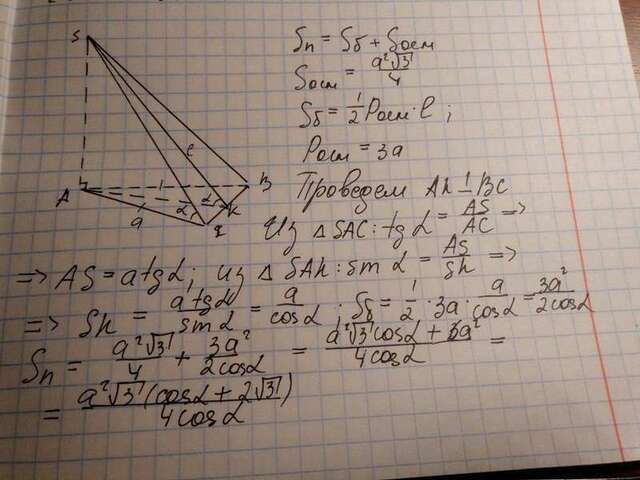 S
A
B
C
K
a
e
α
α
Sп = Sб + Sосн
Sосн = a²√3/4
Sб = 1/2 Pосн·l ;
Pосн = 3a
Проведем AK ⊥ BC
Из △SAC: tg α = AS/AC =>
=> AS = a tg α; из △SAK: sin α = AS/SK =>
=> SK = a tg α/sin α = a/cos α ; Sб = 1/2 · 3a · a/cos α = 3a²/2cos α
Sп = a²√3/4 + 3a²/2cos α = a²√3 cos α + 6a²/4cos α =
= a²√3 (cos α + 2√3)/4cos α